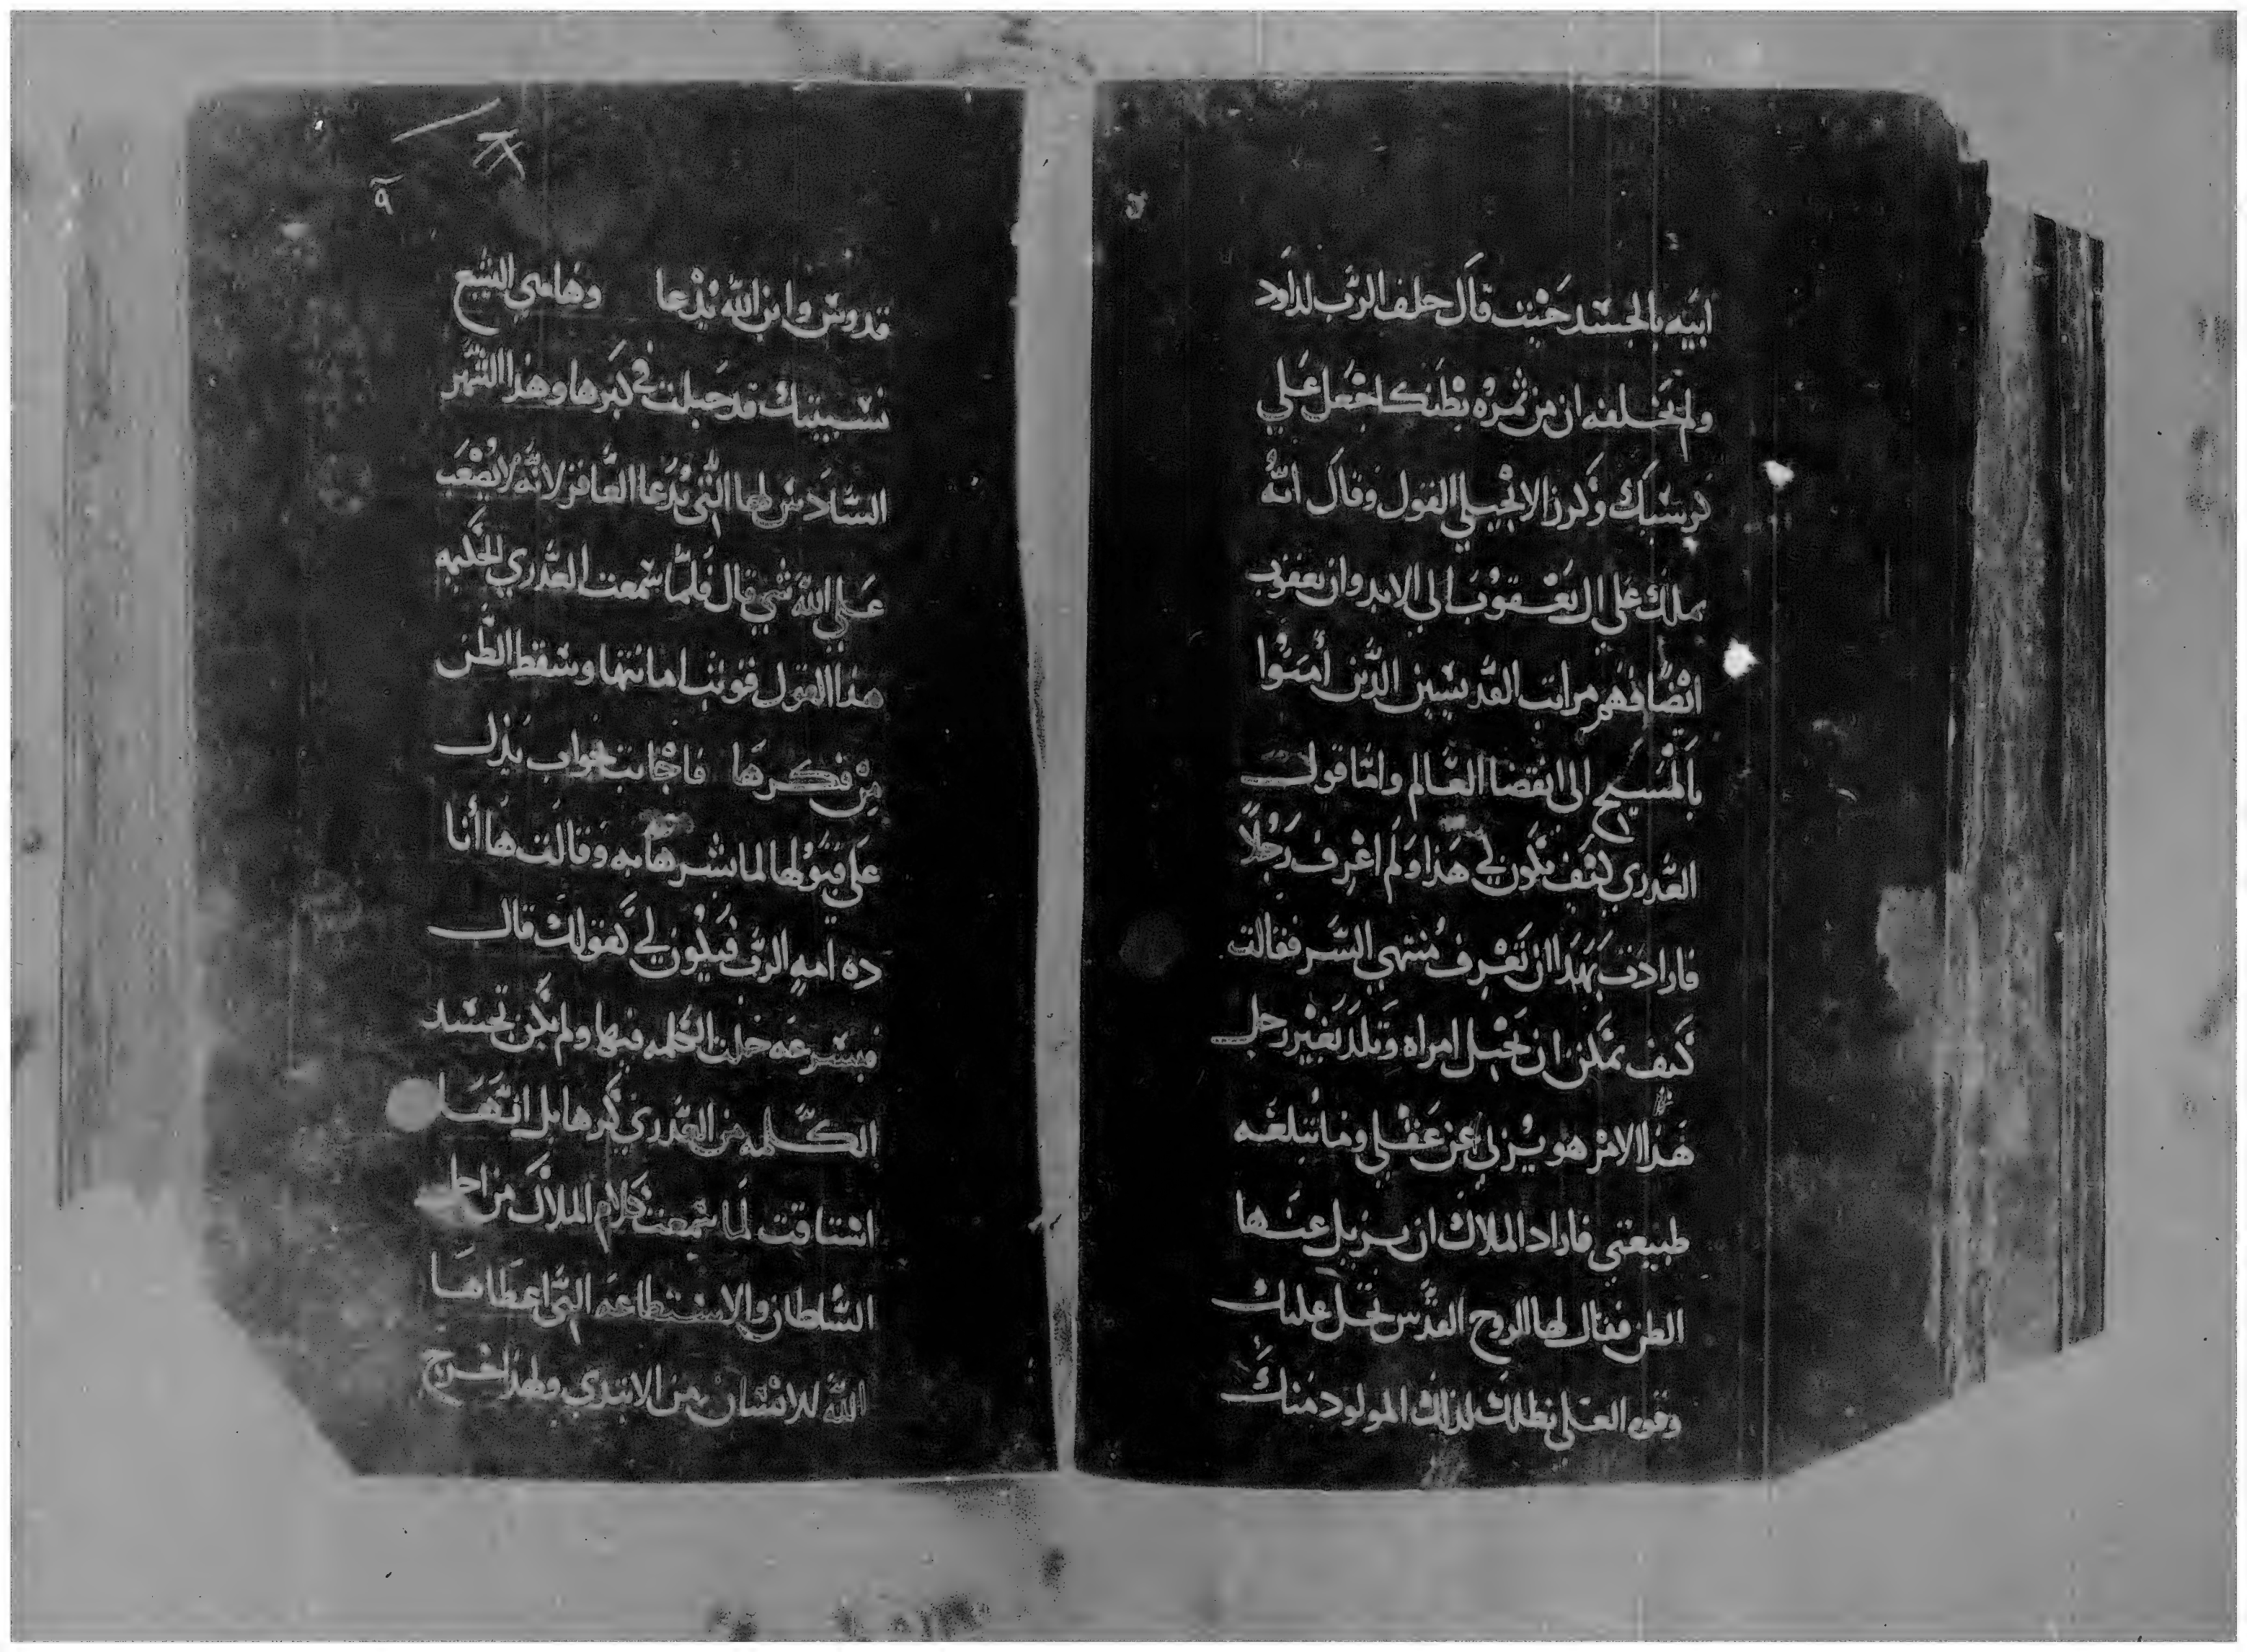 ابيه بالجسد حيث قال حلف الرب لداود
ولم يخلفه ان من ثمرة بطنك اجعل علي
كرسيك وكرز الانجيلي القول وقال انه
يملك علي ال يعقوب الي الابد وان يعقوب
ايضا فهم مراتب القديسين الذين امنوا
بالمسيح الى انقضا العالم واما قول
العذري كيف يكون لي هذا ولم اعرف رجلا
فارادت بهذا ان تعرف منتهي السر فقالت
كيف يمكن ان تحبل امراه وتلد بغير رجل
هذا الامر هو يزلي عن عقلي وما تبلغه
طبيعتي فاراد الملاك ان يزيل عنها
الظن فقال لها الروح القدس تحل عليك
وقوه العلي تظللك لذلك المولود منك
قدوس وابن الله يدعا وهاهي اليشبع
نسيبتك قد حبلت في كبرها وهذا الشهر
السادس لها التي تدعا العاقر لانه لا يصعب
علي الله شي قال فلما سمعت العذري الحكيمه
هذا القول قويت امانتها وسقط الظن
من فكرها فاجابت بجواب يدل
على قبولها لما بشرها به وقالت ها أنا
ده امة الرب فيكون لي كقولك قال
فبسرعه حلت الكلمه فيها ولم يكن تجسد
الكلمه من العذري كرها بل انها
اشتاقت لما سمعت كلام الملاك من اجل
السلطان والاستطاعه التي اعطاها
الله للانسان من الابتدي ولهذا خرج